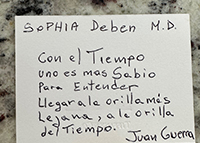 SOPHIA Deben M.D.
Con el Tiempo
uno es mas Sabio
Para Entender
Llegar a la orilla más
Lejana, a le orilla
del Tiempo.
Juan Guerra